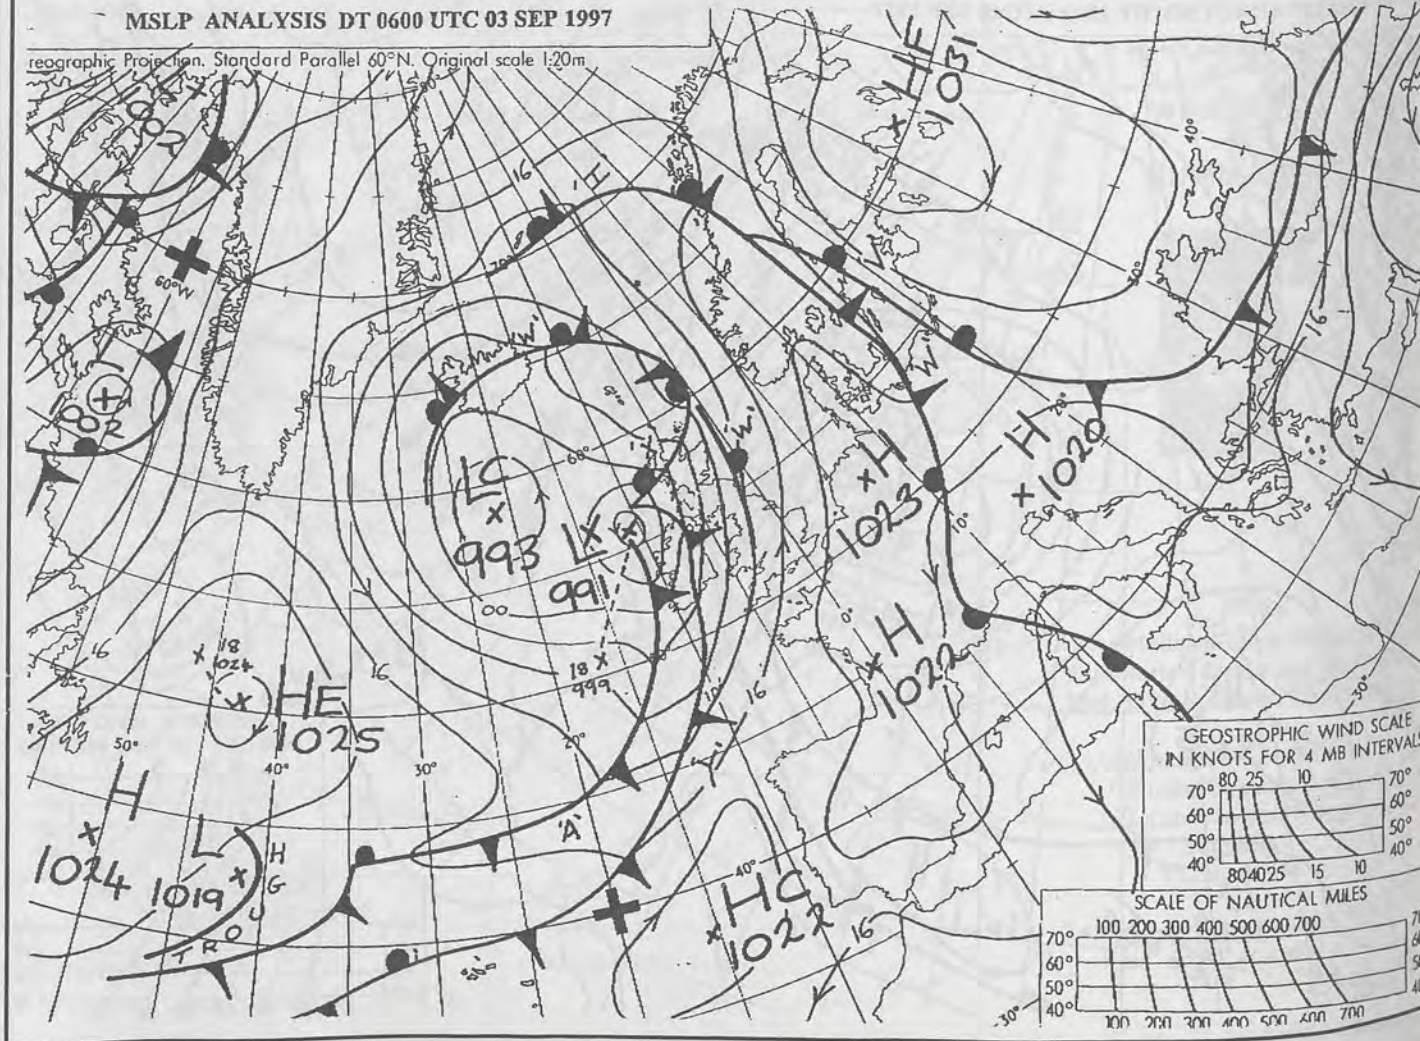 MSLP ANALYSIS DT 0600 UTC 03 SEP 1997
reographic Projection. Standard Parallel 60°N. Original scale 1:20m
1002
HF
1031
40°
80°
16
'H'
70°
60°W
16
30°
'V'
'W'
'W'
1002
20°
H
1020
'E'
H
1023
60°
LC
993
LX
991
10°
00
0°
H
1022
16
18
1024
16
18
999
50°
10°
16
HE
1025
20°
30°
40°
50°
'Y'
'A'
H
1024
L
1019
TROUGH
40°
HC
1022
16
30°
-30°
GEOSTROPHIC WIND SCALE
IN KNOTS FOR 4 MB INTERVALS
80 25 10
70° 70°
60° 60°
50° 50°
40° 40°
80 40 25 15 10
SCALE OF NAUTICAL MILES
100 200 300 400 500 600 700
70°
60°
50°
40°
100 200 300 400 500 600 700